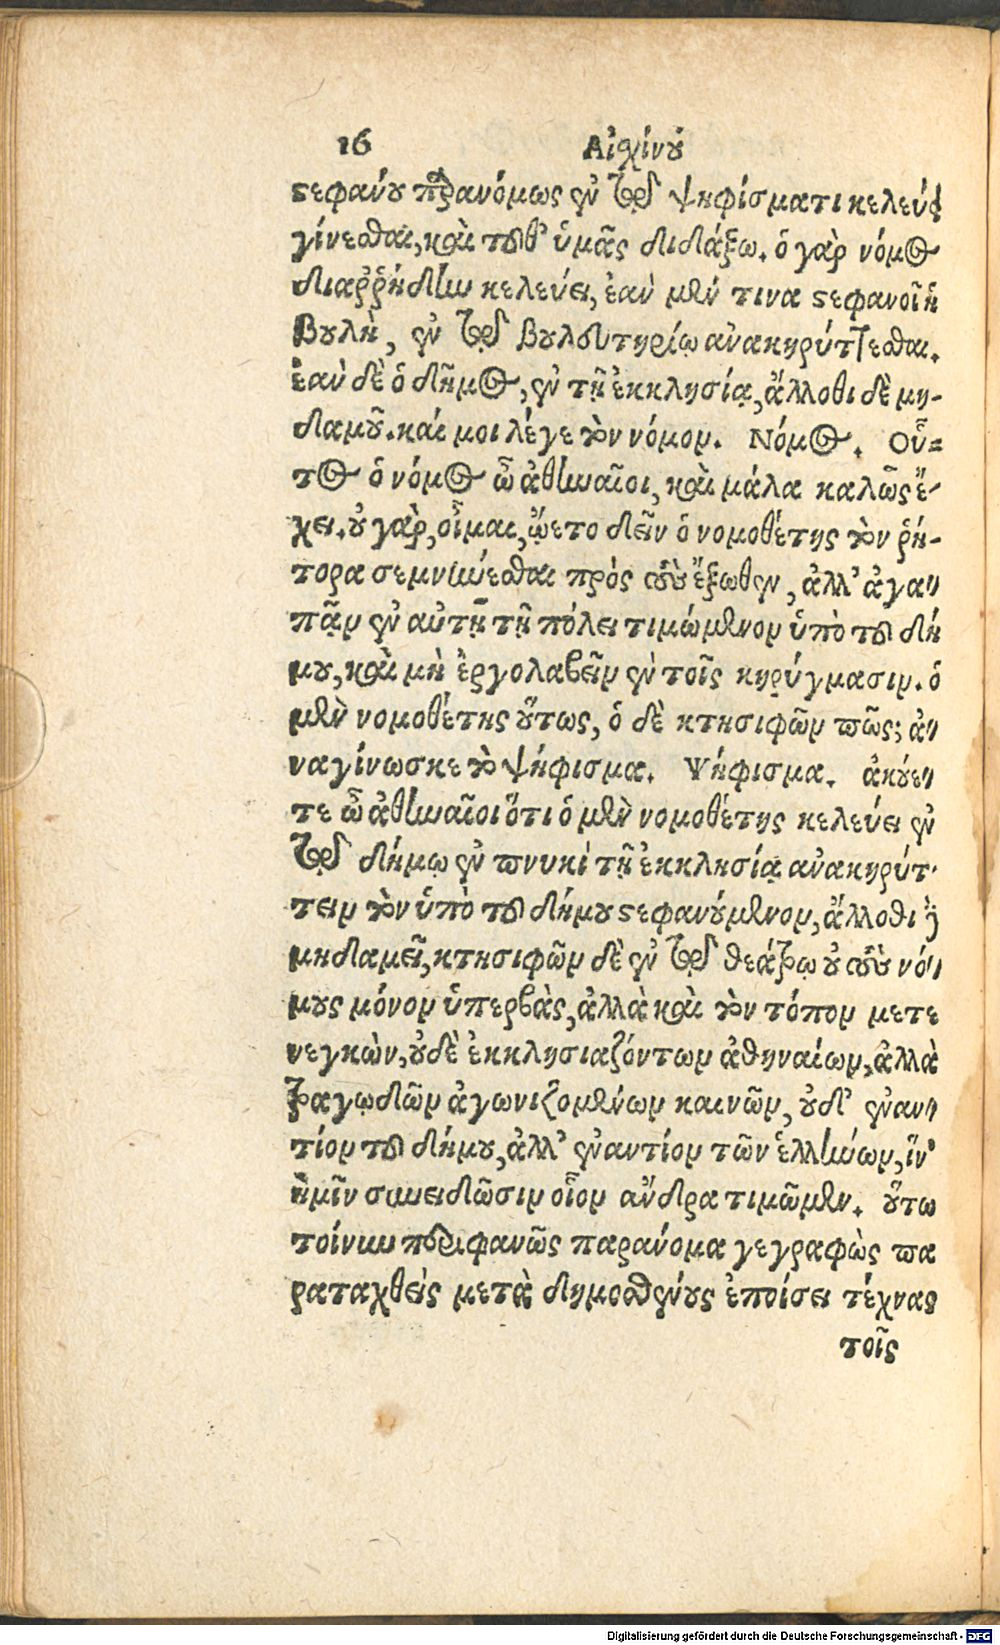 16 Αἰσχίνου
στεφάνου παρανόμως ἐν τῷ ψηφίσματι κελεύει
γίνεσθαι, καὶ τοῦθ' ὑμᾶς διδάξω. ὁ γὰρ νόμος
διαῤῥήδην κελεύει, ἐὰν μέν τινα στεφανοῖ ἡ
βουλὴ, ἐν τῷ βουλευτηρίῳ ἀνακηρύττεσθαι.
ἐὰν δὲ ὁ δῆμος, ἐν τῇ ἐκκλησίᾳ, ἄλλοθι δὲ μη-
δαμοῦ. καί μοι λέγε τὸν νόμον. Νόμος. Οὗ-
τος ὁ νόμος ὦ ἀθηναῖοι, καὶ μάλα καλῶς ἔ-
χει. οὐ γὰρ, οἶμαι, ᾤετο δεῖν ὁ νομοθέτης τὸν ῥή-
τορα σεμνύνεσθαι πρὸς τοὺς ἔξωθεν, ἀλλ' ἀγα-
πᾷν ἐν αὐτῇ τῇ πόλει τιμώμενον ὑπὸ τοῦ δή
μου, καὶ μὴ ἐργολαβεῖν ἐν τοῖς κηρύγμασιν. ὁ
μὲν νομοθέτης οὕτως, ὁ δὲ κτησιφῶν πῶς; ἀ-
ναγίνωσκε τὸ ψήφισμα. Ψήφισμα. ἀκούε-
τε ὦ ἀθηναῖοι ὅτι ὁ μὲν νομοθέτης κελεύει ἐν
τῷ δήμῳ ἐν πνυκὶ τῇ ἐκκλησίᾳ ἀνακηρύτ-
τειν τὸν ὑπὸ τοῦ δήμου στεφανούμενον, ἄλλοθι δὲ
μηδαμεῖ, κτησιφῶν δὲ ἐν τῷ θεάτρῳ οὐ τοὺς νό-
μους μόνον ὑπερβὰς, ἀλλὰ καὶ τὸν τόπον μετε
νεγκὼν, οὐδὲ ἐκκλησιαζόντων ἀθηναίων, ἀλλὰ
τραγῳδῶν ἀγωνιζομένων καινῶν, οὐδ' ἐναν-
τίον τοῦ δήμου, ἀλλ' ἐναντίον τῶν ἑλλήνων, ἵν'
ἡμῖν συνειδῶσιν οἷον ἄνδρα τιμῶμεν. οὕτω
τοίνυν περιφανῶς παράνομα γεγραφὼς πα
ραταχθεὶς μετὰ δημοσθένους ἐποίσει τέχνας
τοῖς
Digitalisierung gefördert durch die Deutsche Forschungsgemeinschaft - DFG